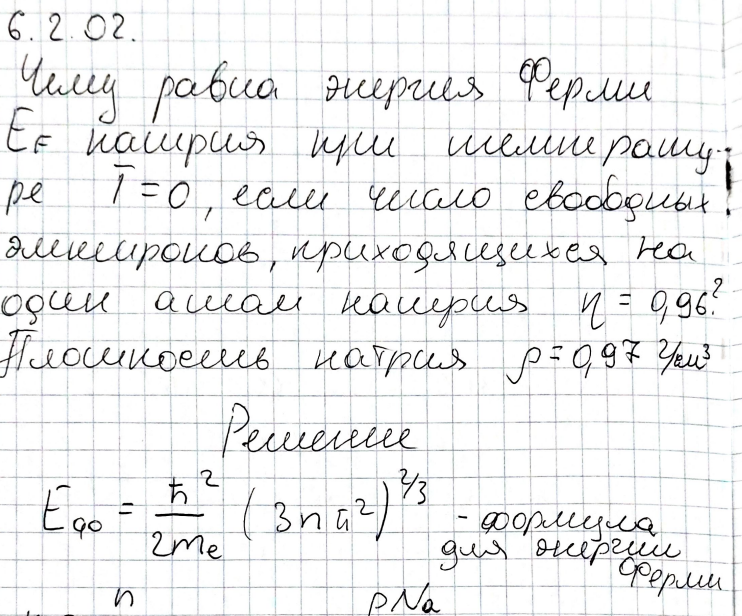 6.2.02.
Чему равна энергия Ферми
E_F натрия при температу-
ре T=0, если число свободных
электронов, приходящихся на
один атом натрия η = 0,96?
Плотность натрия ρ=0,97 г/см³
Решение
E_фо = ħ²/2mₑ (3nπ²)^2/3 - формула
для энергии
Ферми
n ρNa